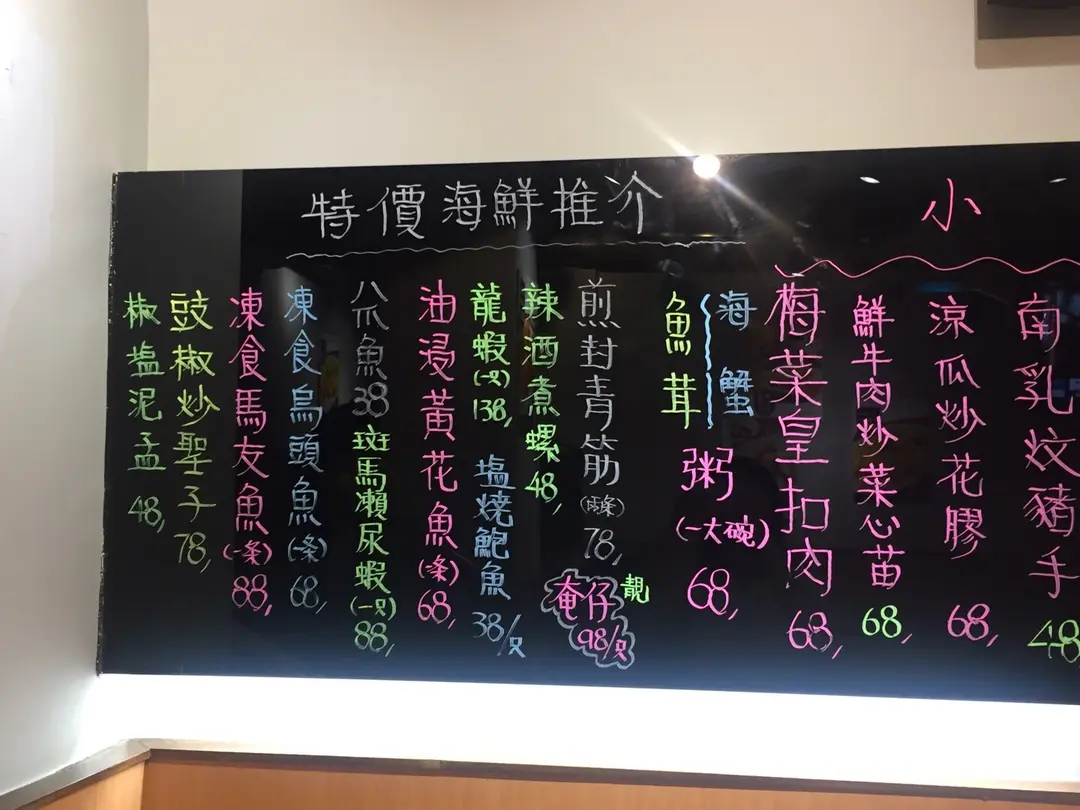 特價海鮮推介
小
南乳炆豬手 48
涼瓜炒花膠 68,
鮮牛肉炒菜心苗 68,
梅菜皇扣肉 68,
海蟹
魚茸
粥(一大碗) 68,
煎封青筋(兩條) 78,
靚
奄仔 98/只
辣酒煮螺 48,
龍蝦(一只) 138,
塩燒鮑魚 38/只
油浸黃花魚(條) 68,
八爪魚 38
斑馬瀨尿蝦(一只) 88,
凍食烏頭魚(條) 68,
凍食馬友魚(一條) 88,
豉椒炒聖子 78,
椒塩泥孟 48,